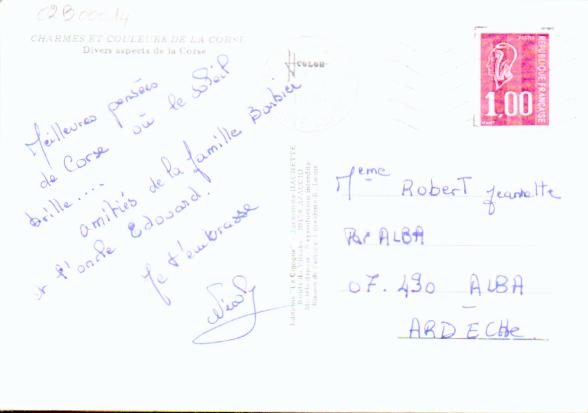 02B00014
CHARMES ET COULEURS DE LA CORSE
Divers aspects de la Corse
COLOR
Meilleures pensées
de Corse où le soleil
brille....
amitiés de la famille Barbier
et l'oncle Edouard.
Je t'embrasse
REPUBLIQUE FRANÇAISE
POSTES
1,00
Meme Robert Jeannette
Par ALBA
07.490 ALBA
ARDECHE.